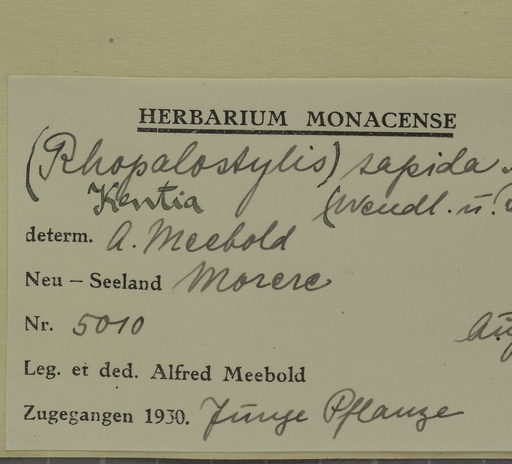 HERBARIUM MONACENSE
(Rhopalostylis) sapida
Kentia (Wendl. u.
determ. A. Meebold
Neu – Seeland Morere
Nr. 5010 Aug
Leg. et ded. Alfred Meebold
Zugegangen 1930. Junge Pflanze